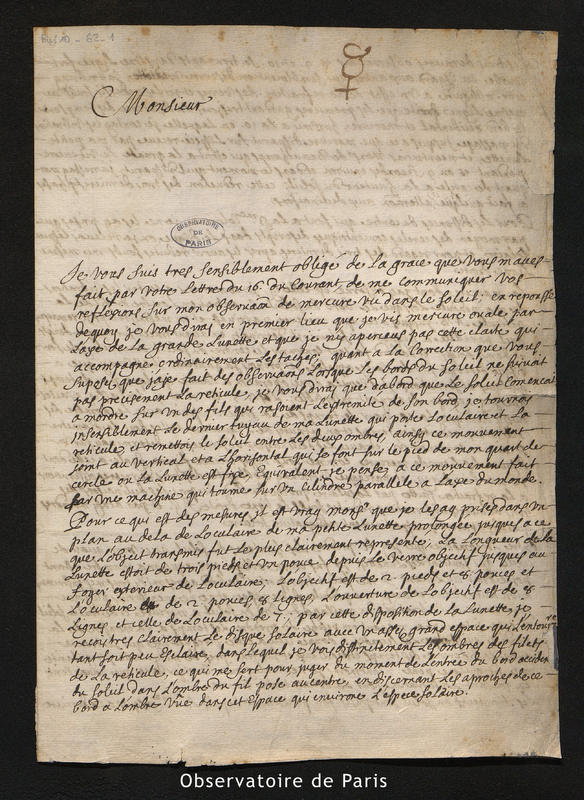 B4.10 - 62 - 1
☿
Monsieur
OBSERVATOIRE
DE
PARIS
Je vous suis tres sensiblement obligé de la grace que vous m'aves
fait par votre Lettre du 16. du Courant, de me communiquer vos
reflexions sur mon observaōn de mercure vû dans le soleil; en reponse
dequoy je vous diray en premier lieu que je vis mercure ovale par
Laxe de la grande Lunette et que je n'y aperceus pas cette clarte qui
accompagne ordinairement Les taches; quant a la Correction que vous
suposes que jaye fait des observaōns Lorsque les bords du soleil ne suivoit
pas precisement La reticule, je vous diray que dabord que Le soleil Comencoit
a mordre sur un des fils qui rasoient L'extremite de son bord, je tournois
insensiblement Le dernier tuyau de ma Lunette qui porte Loculaire et La
reticule et remettois le soleil entre Les deux ombres, ainsy ce mouvement
joint au vertical et a Lhorisontal qui se font sur Le pied de mon quart de
cercle ou La Lunette est fixe, Equivalent je pense a ce mouvement fait
par une machine qui tourne sur un cilindre parallele a Laxe du monde.
Pour ce qui est des mesures, il est vray monsr que je les ay prises dans un
plan au dela de Loculaire de ma petite Lunette prolongée jusques a ce
que Lobject transmis fut Le plus clairement represente; La Longueur de La
Lunette estoit de trois pieds et un pouce depuis Le verre objectif jusques au
foyer exterieur de Loculaire, Lobjectif est de 2 pieds et 8 pouces et
Loculaire de 2 pouces 8 lignes, Louverture de Lobjectif est de 8
Lignes et celle de Loculaire de 7; par cette disposition de La Lunette je
recois tres clairement Le disque solaire avec un asses grand espace qui Lentoure
tant soit peu Esclaire, dans lequel je vois distinctement Les ombres des filets
de La reticule, ce qui me sert pour juger du moment de Lentree du bord occiden
du soleil dans Lombre du fil pose au centre, en discernant Les aproches de ce
bord a Lombre vüe dans cet espace qui environe L'espece solaire.
Observatoire de Paris